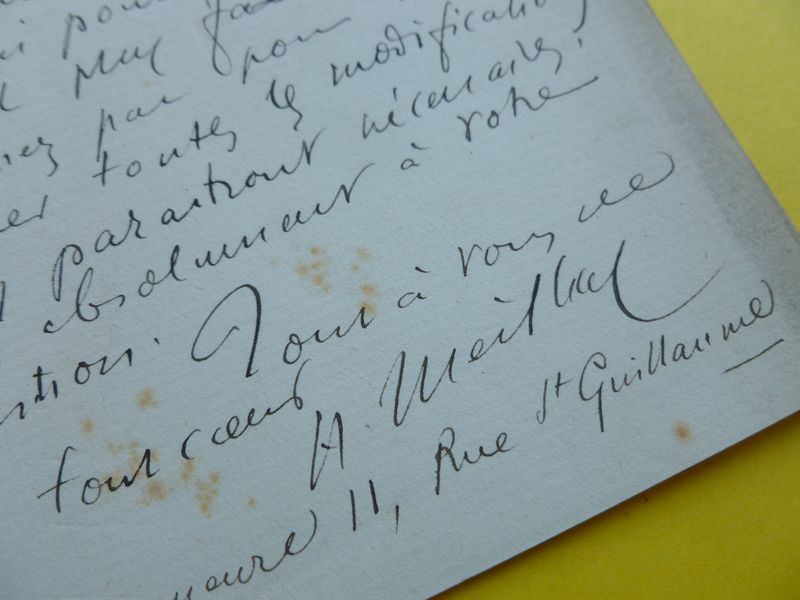 pour
plus
pas pour
toutes les modifications
paraitront nécessaires.
absolument à votre
Tout à vous de
tout cœur
H Meilhac
11, Rue St Guillaume